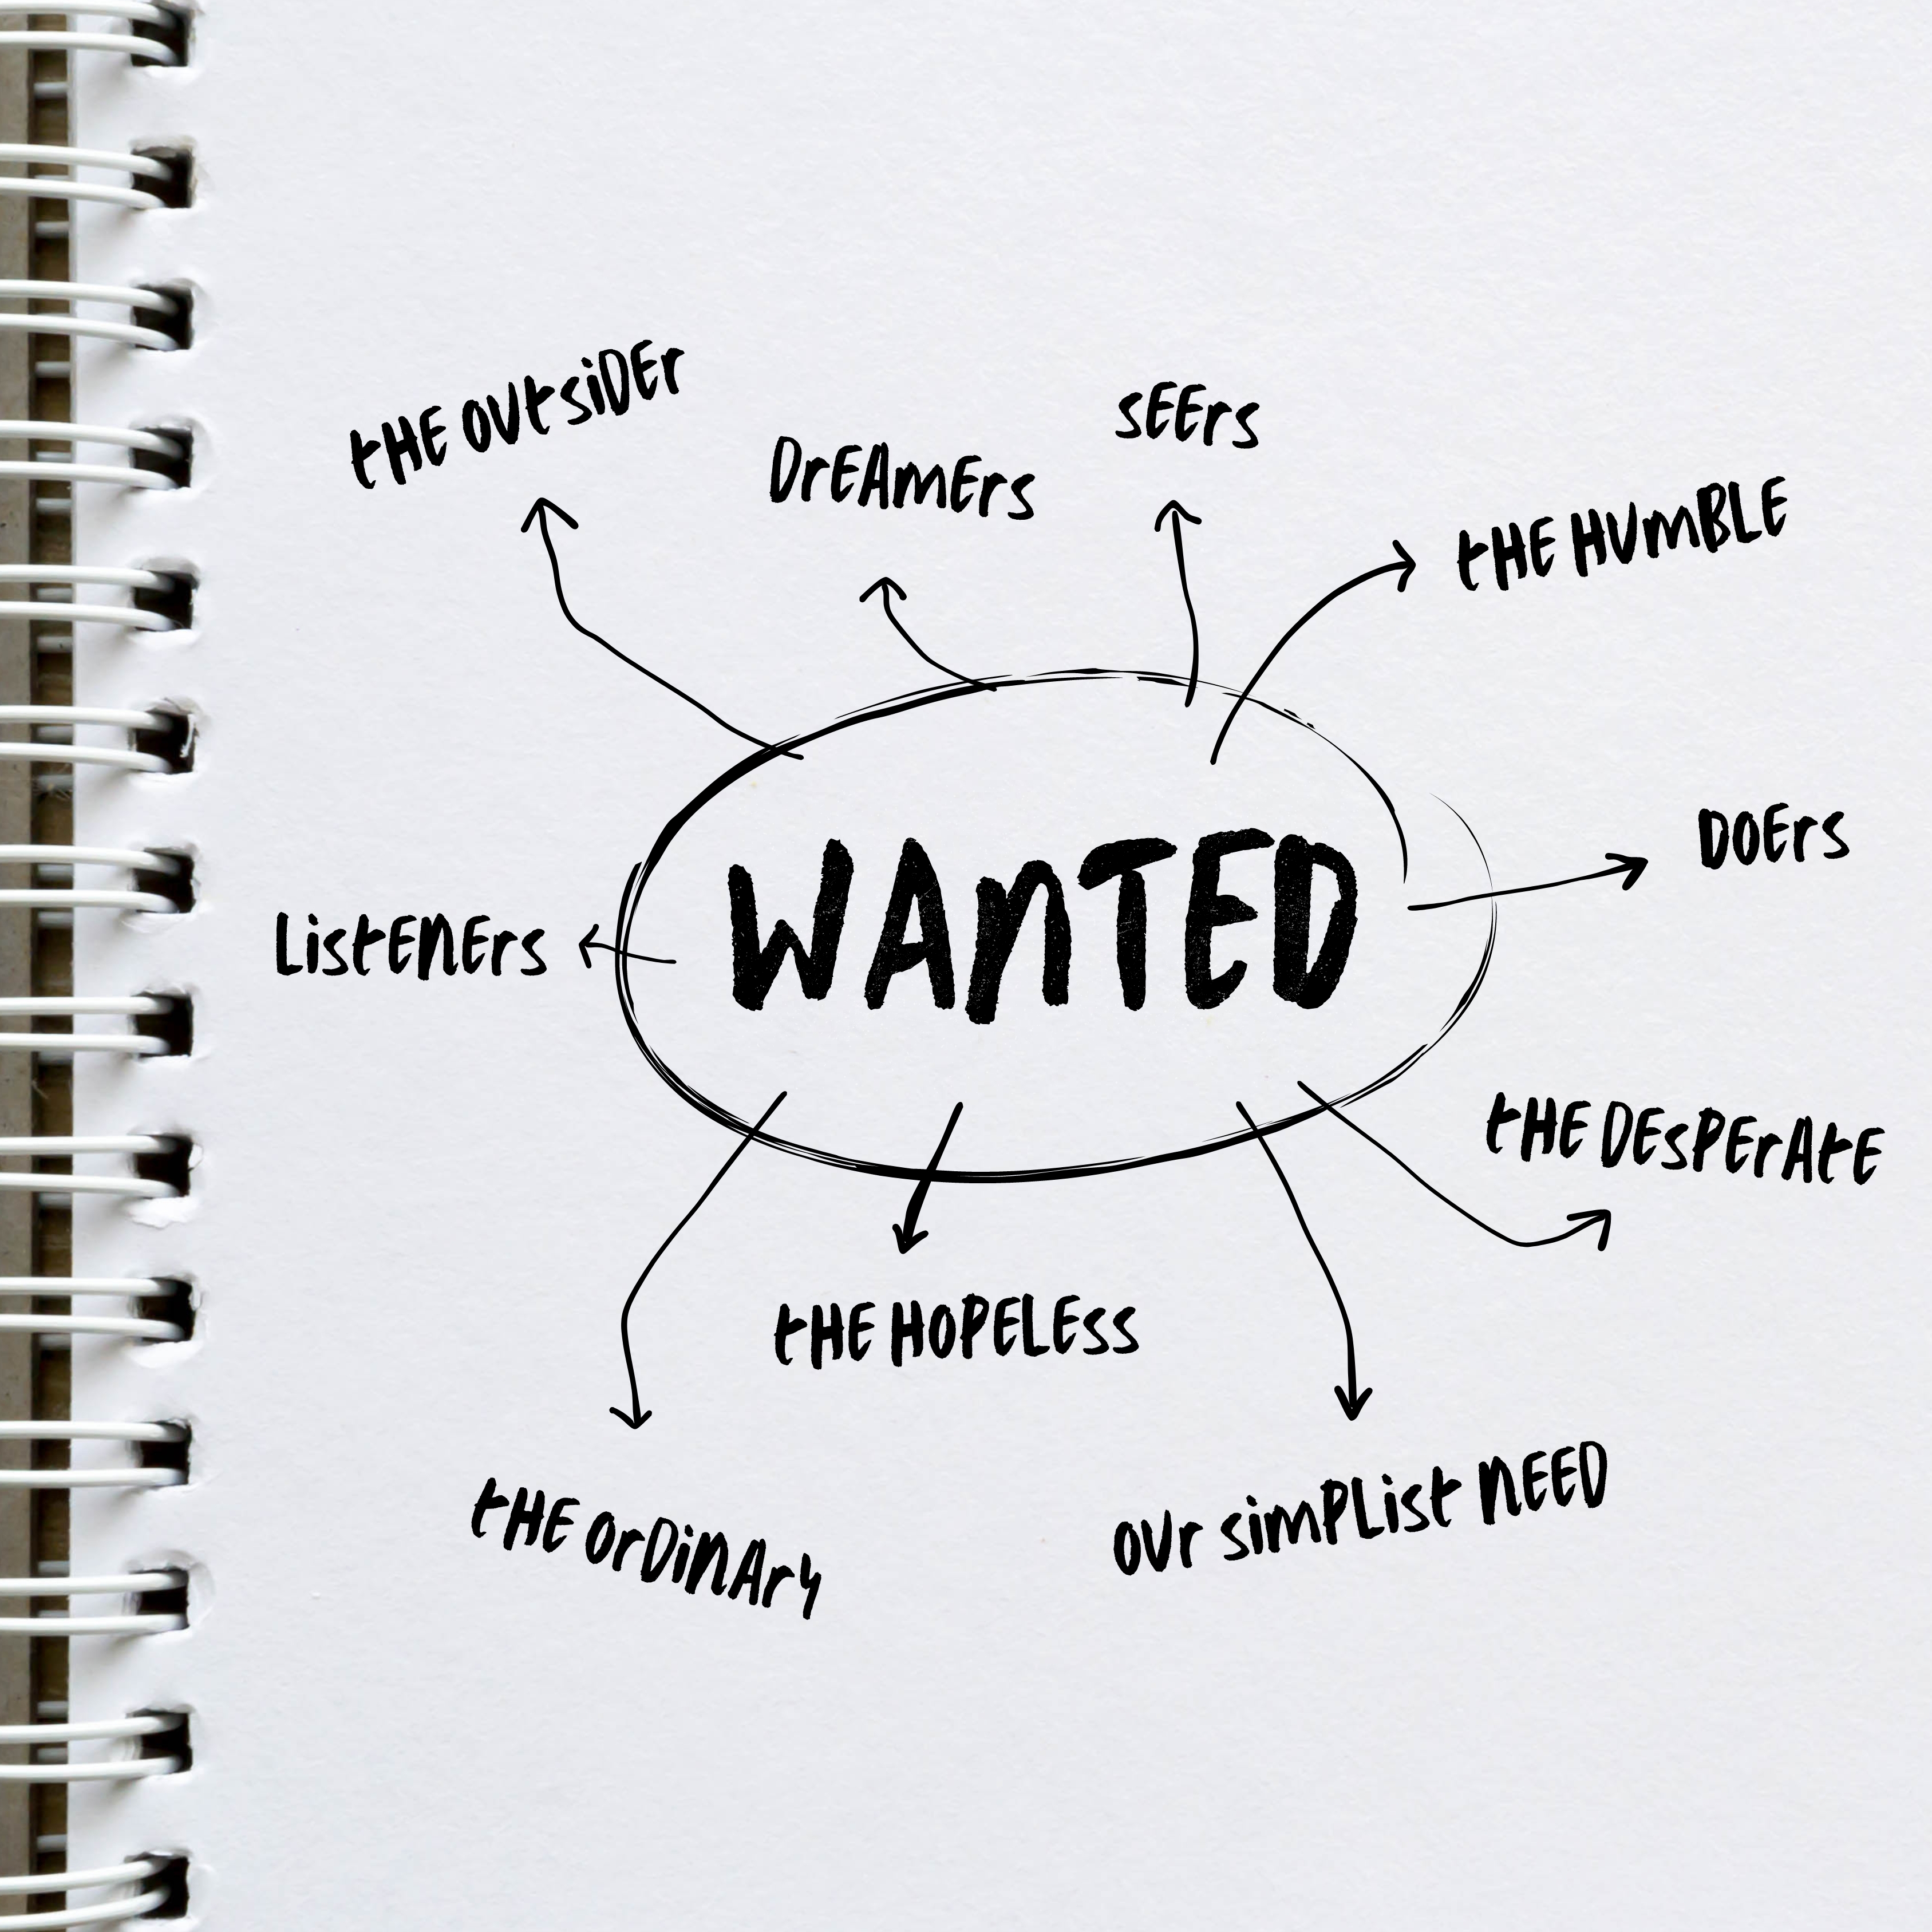 tHE OUtsiDEr
DrEAmErs
sEErs
tHE HUmBLE
DOErs
ListENErs
WAnTED
tHE DEsPErAtE
tHE HOPELEss
tHE OrDiNAry
OUr simPList NEED